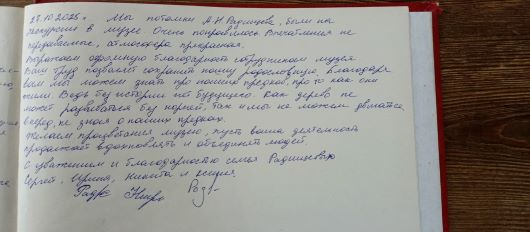 27.10.2025 г. Мы потомки А.Н. Радищева, были на
экскурсии в музее Очень понравилось Впечатления не
передаваемые, атмосфера прекрасная.
Выражаем огромную благодарность сотрудникам музея
Ваш труд позволяет сохранить нашу родословную Благодаря
вам мы можем знать про наших предков, про то как они
жили Ведь без истории нет будущего. Как дерево не
может развиваться без корней, так и мы не можем двигаться
вперед, не зная о наших предках.
Желаем процветания музею, пусть ваша деятельность
продолжает вдохновлять и объединять людей.
С уважением и благодарностью семья Радищевых
Сергей, Ирина, Никита и Ксения